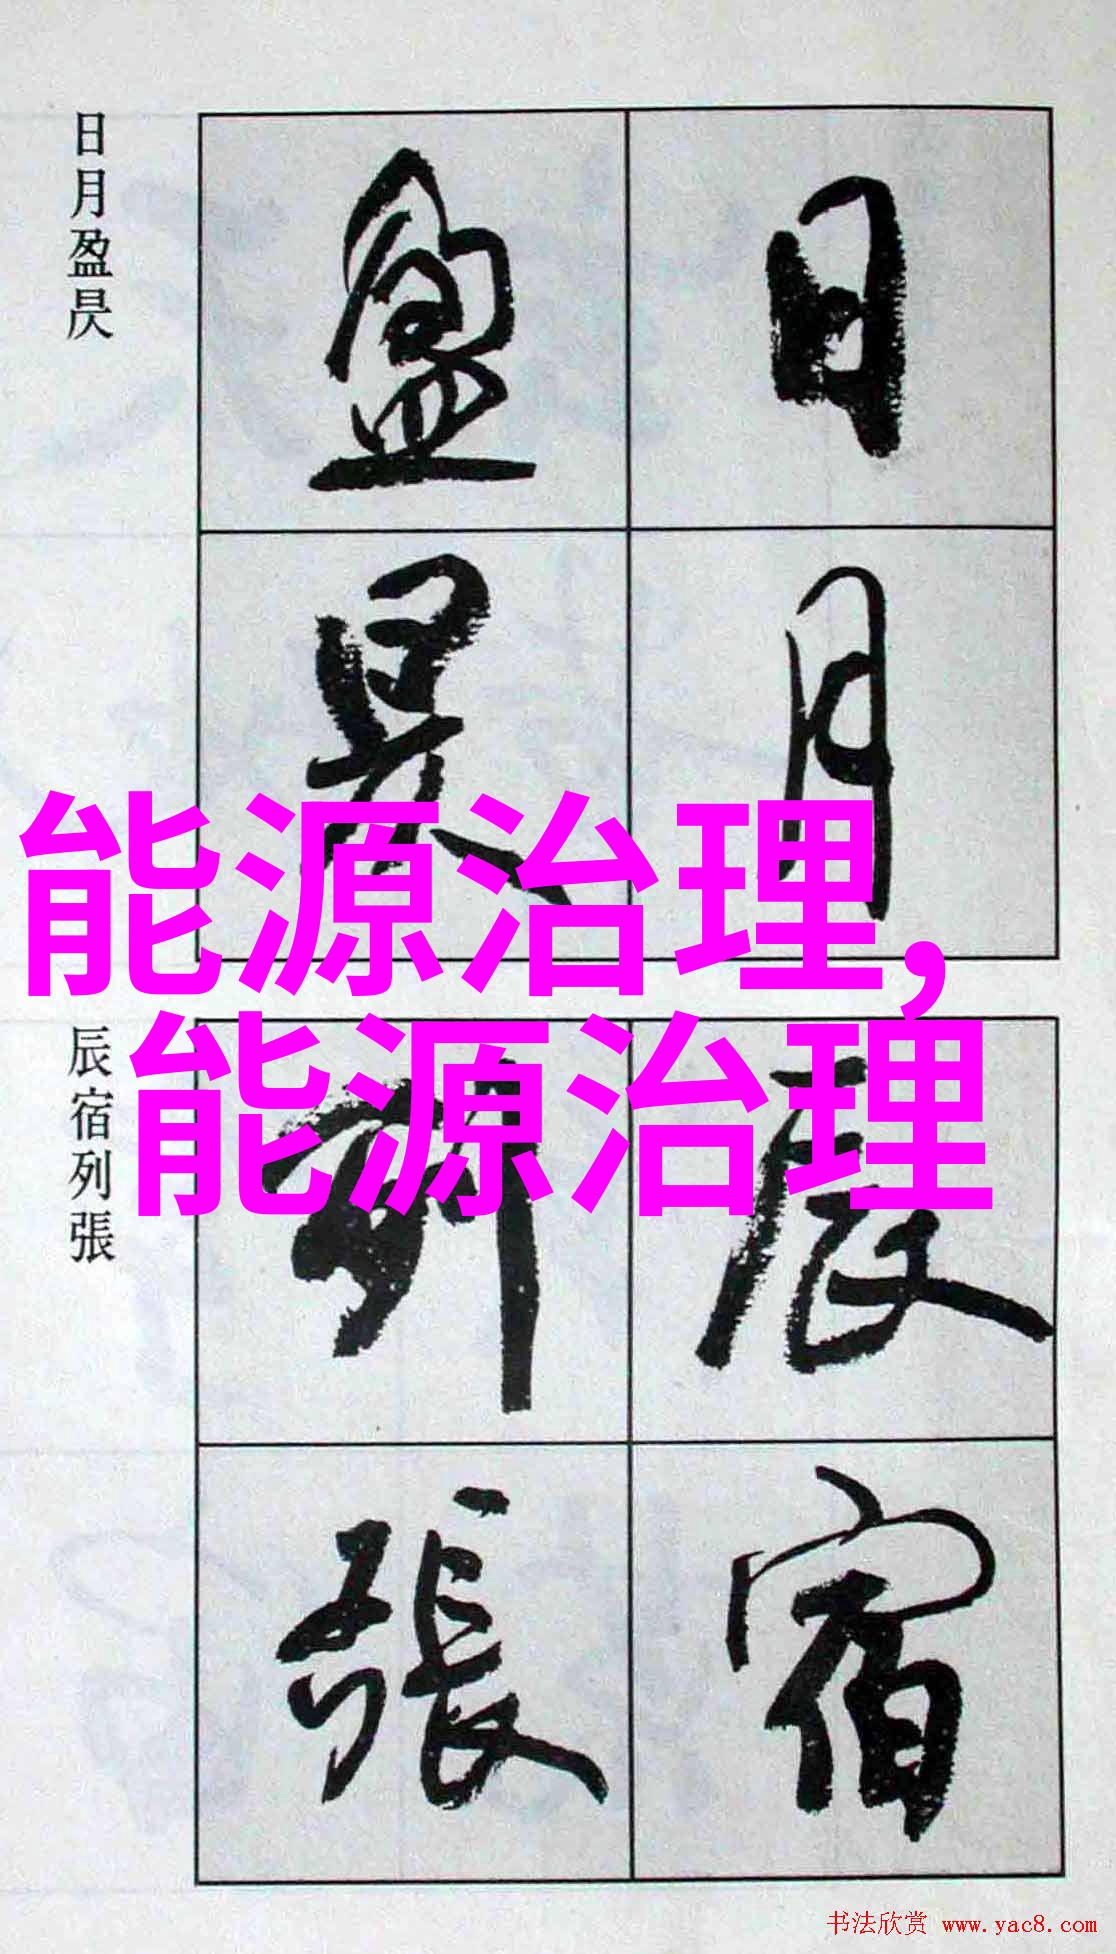 日月
盈昃
日月盈昃
能源治理,
能源治理
辰宿
列張
辰宿列張
书法欣赏 www.yac8.com